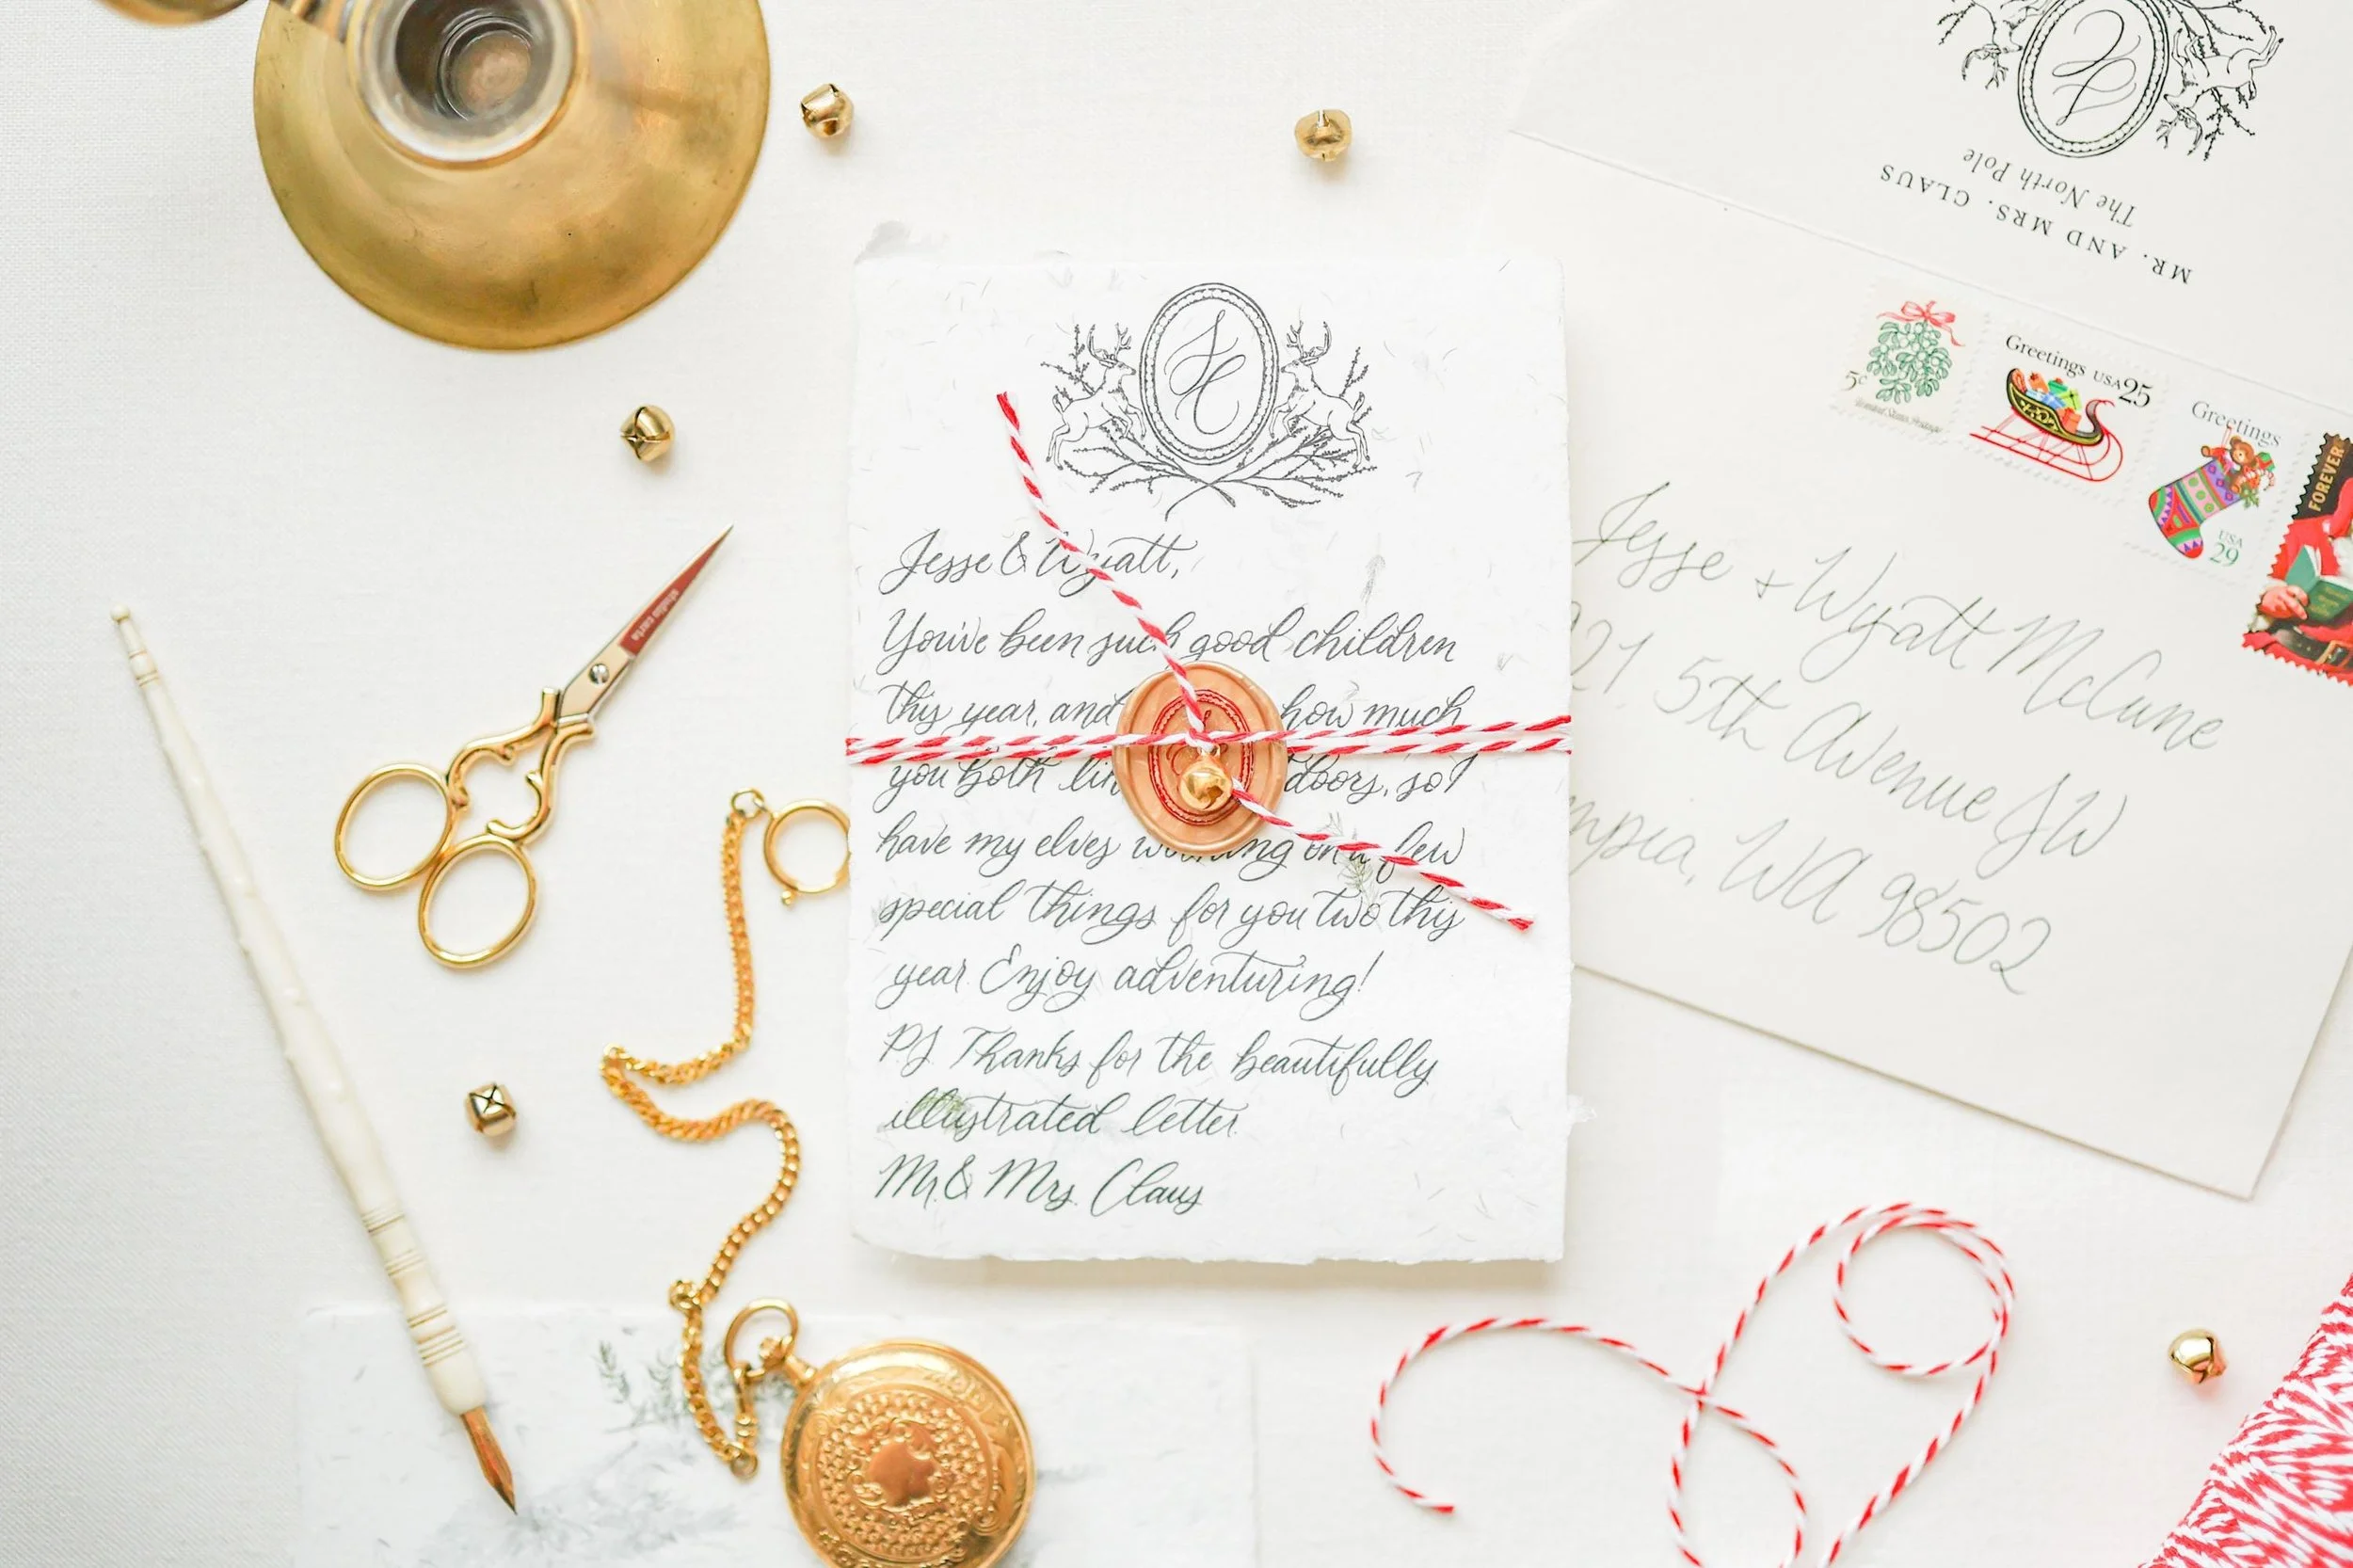 SC
Jesse & Wyatt,
You've been such good children
this year, and how much
you both doors, so I
have my elves working on a few
special things for you two this
year. Enjoy adventuring!
PS Thanks for the beautifully
illustrated letter.
Mr. & Mrs. Claus
MR. AND MRS. CLAUS
The North Pole
5c
United States Postage
Greetings USA 25
Greetings
USA
29
FOREVER
Jesse + Wyatt McCune
21 5th Avenue SW
WA 98502
studio carta